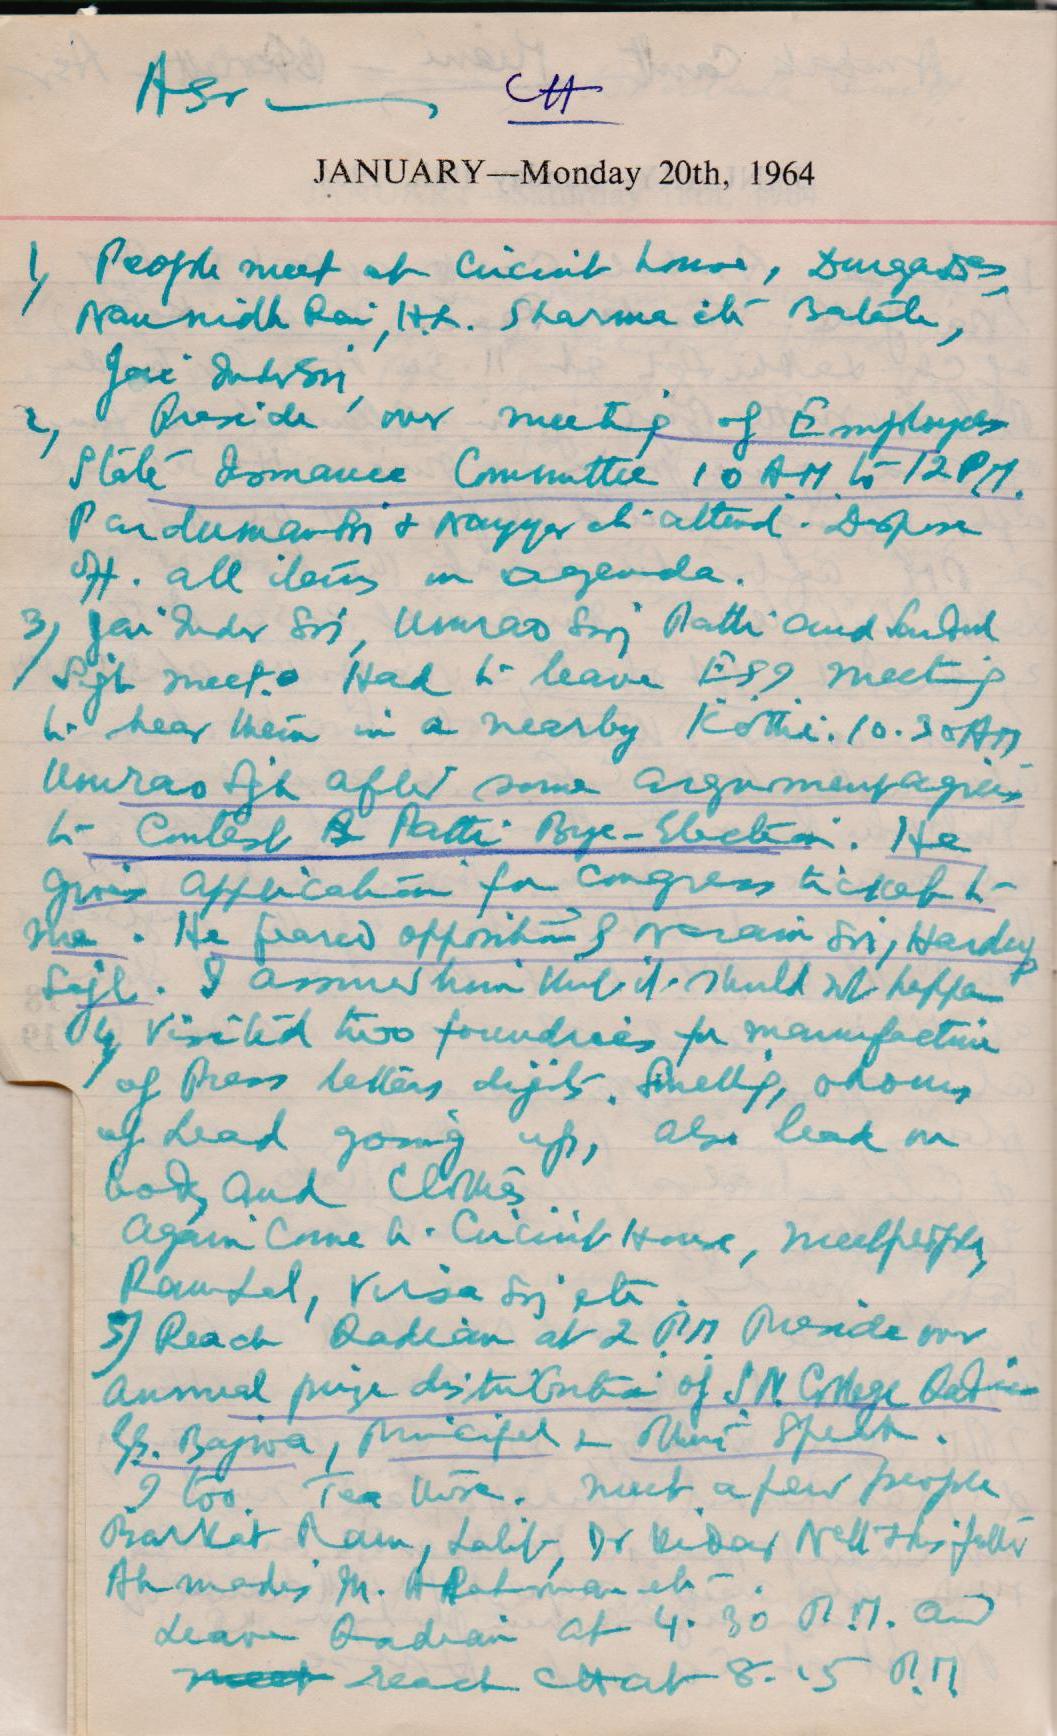 Asr — CH
JANUARY—Monday 20th, 1964
1, People meet at Circuit house, Durga Das,
Naunidh Rai, H.L. Sharma etc Batala,
Jai Inder Sri,
2, Preside over meeting of Employees
State Insurance Committee 10 AM to 12 P.M.
& Nayyar etc attend. Dispose
off. all items on agenda.
3, Jai Inder Sri, Umrao Sri Patti and
Sigh meet. Had to leave ESI meeting
to hear them in a nearby Kothi. 10.30 AM
Umrao Sgh after some argument agrees
to Contest Patti Bye-Election. He
gives application for Congress ticket to
me. He feared opposition of Narain Sri, Hardep
Sigh. I assured him that it should not happen
4, Visited two foundries for manufacture
of Press letters digits. Smelting, odours
of Lead going up, also lead on
body and Clothes
Again Come to Circuit House, meet people,
Ram Lal, Virsa Sri etc.
5) Reach Qadian at 2 P.M Preside over
annual prize distribution of S.N. College Qadian
Bajwa, Principal & others Speak.
I too. Tea there. meet a few people
Barkat Ram, Dr Kidar Nath + his father
Ahmadis M. A Rahman etc.
Leave Qadian at 4.30 P.M. and
reach CH at 8.15 P.M